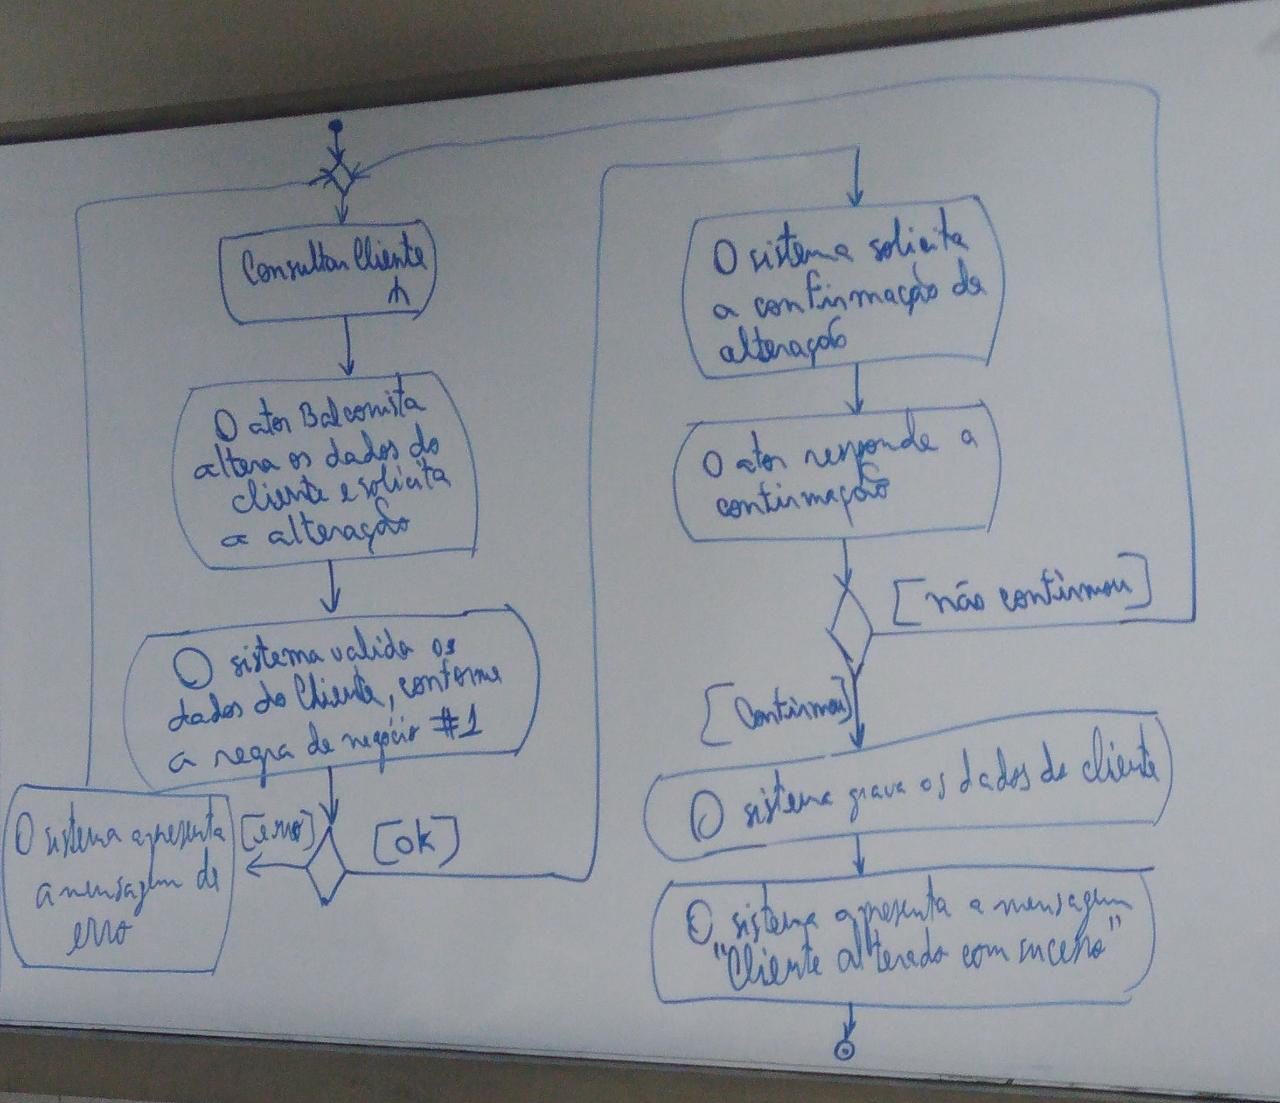 Consultar Cliente
O ator Balconista
altera os dados do
cliente e solicita
a alteração
O sistema valida os
dados do Cliente, conforme
a regra de negócio #1
[erro]
[ok]
O sistema apresenta
a mensagem de
erro
O sistema solicita
a confirmação de
alteração
O ator responde a
confirmação
[não confirmou]
[Confirmou]
O sistema grava os dados do cliente
O sistema apresenta a mensagem
"Cliente alterado com sucesso"